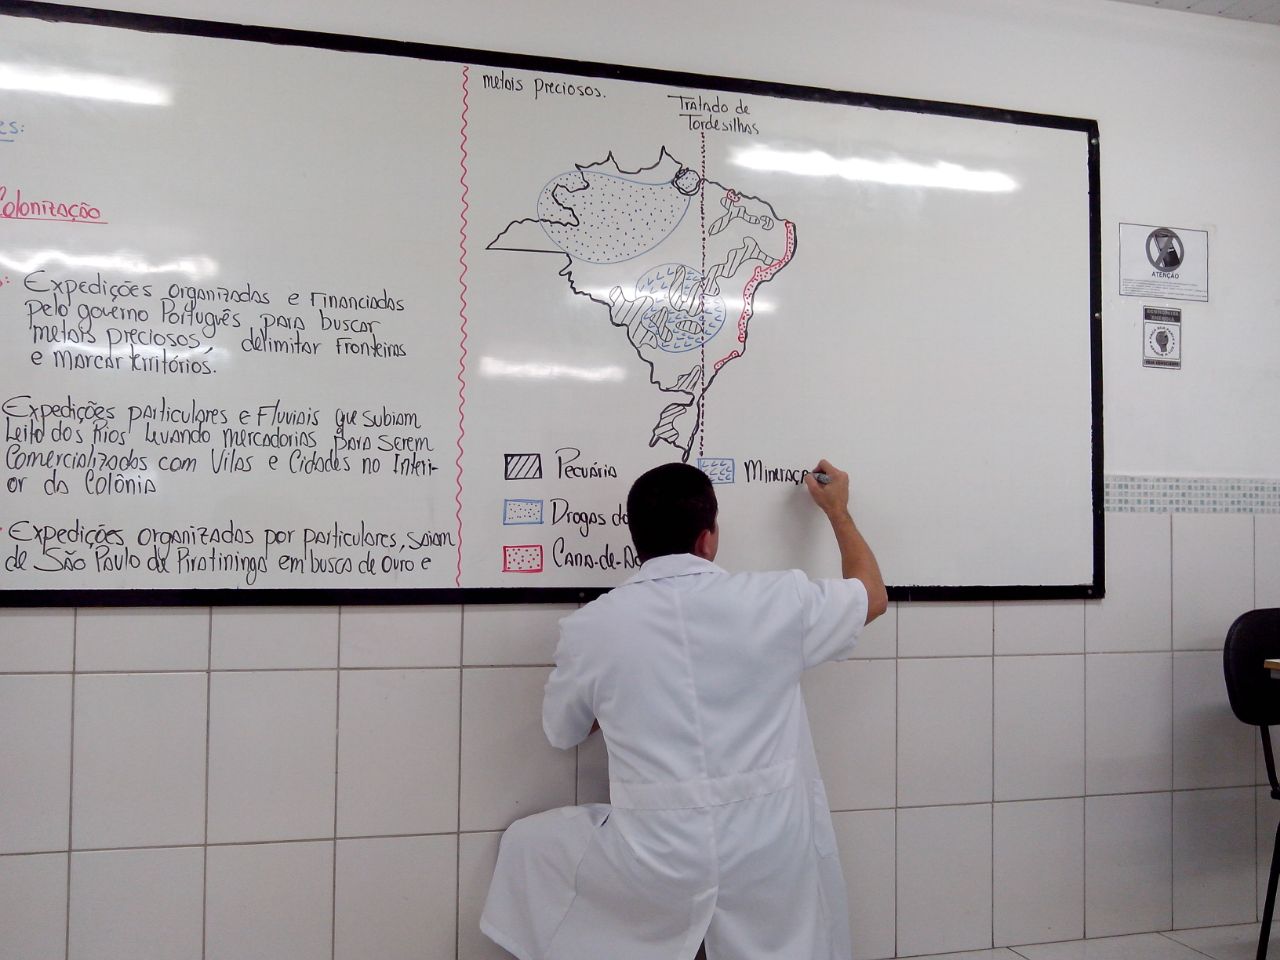 es:
Colonização
s: Expedições organizadas e Financiadas
pelo governo Português para buscar
metais preciosos, delimitar Fronteiras
e marcar territórios.
Expedições particulares e Fluviais que subiam
Leito dos Rios levando mercadorias para serem
Comercializadas com Vilas e Cidades no Interi-
or da Colônia
Expedições organizadas por particulares, saiam
de São Paulo de Piratininga em busca de ouro e
metais preciosos.
Tratado de
Tordesilhas
Pecuária
Drogas do
Cana-de-Aç
Mineraçã
ATENÇÃO